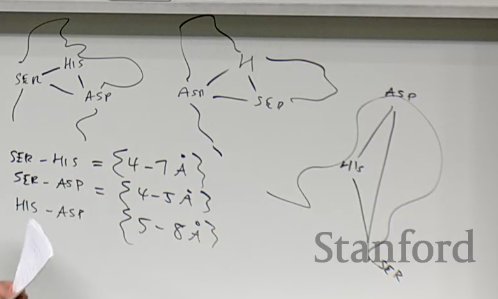 HIS
SER
ASP
H
ASP
SER
ASP
HIS
SER
SER-HIS = {4-7 Å}
SER-ASP = {4-5 Å}
HIS-ASP {5-8 Å}
Stanford